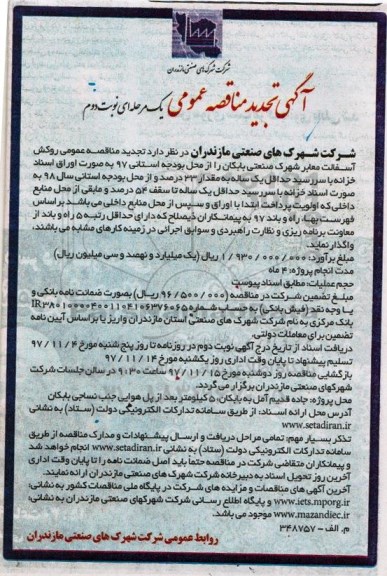 شرکت شهرک های صنعتی مازندران
آگهی تجدید مناقصه عمومی یک مرحله ای نوبت دوم
شرکت شهرک های صنعتی مازندران در نظر دارد تجدید مناقصه عمومی روکش
آسفالت معابر شهرک صنعتی بایکان را از محل بودجه استانی ۹۷ به صورت اوراق اسناد
خزانه با سررسید حداقل یک ساله به مقدار ۳۳ درصد و از محل بودجه استانی سال ۹۸ به
صورت اسناد خزانه با سررسید حداقل یک ساله تا سقف ۵۴ درصد و مابقی از محل منابع
داخلی که اولویت پرداخت ابتدا با اوراق و سپس از محل منابع داخلی می باشد بر اساس
فهرست بهاء راه و باند ۹۷ به پیمانکاران ذیصلاح که دارای حداقل رتبه ۵ راه و باند از
معاونت برنامه ریزی و نظارت راهبردی و سوابق اجرائی در زمینه کارهای مشابه می باشند،
واگذار نماید.
مبلغ برآورد: ۱/۹۳۰/۰۰۰/۰۰۰ ریال (یک میلیارد و نهصد و سی میلیون ریال)
مدت انجام پروژه: ۴ ماه
حجم عملیات: مطابق اسناد پیوست
مبلغ تضمین شرکت در مناقصه (۹۶/۵۰۰/۰۰۰ ریال) بصورت ضمانت نامه بانکی و
یا وجه نقد (فیش بانکی) به حساب شماره IR۳۸۰۱۰۰۰۰۴۰۰۱۱۰۴۱۰۶۳۷۶۰۶۵
بانک مرکزی به نام شرکت شهرک های صنعتی استان مازندران واریز یا بر اساس آیین نامه
تضمین برای معاملات دولتی.
دریافت اسناد از تاریخ درج آگهی نوبت دوم در روزنامه تا روز پنج شنبه مورخ ۹۷/۱۱/۰۴
تسلیم پیشنهاد تا پایان وقت اداری روز یکشنبه مورخ ۹۷/۱۱/۱۴
بازگشایی مناقصه روز دوشنبه مورخ ۹۷/۱۱/۱۵ ساعت ۹:۳۰ در سالن جلسات شرکت
شهرکهای صنعتی مازندران برگزار می گردد.
محل پروژه: جاده قدیم آمل به بابکان، ۵ کیلومتر بعد از پل هوایی جنب نساجی بابکان
آدرس محل ارائه اسناد: از طریق سامانه تدارکات الکترونیکی دولت (ستاد) به نشانی
www.setadiran.ir
تذکر بسیار مهم: تمامی مراحل دریافت و ارسال پیشنهادات و مدارک مناقصه از طریق
سامانه تدارکات الکترونیکی دولت (ستاد) به نشانی www.setadiran.ir انجام خواهد شد
و پیمانکاران متقاضی شرکت در مناقصه حتماً باید اصل ضمانت نامه را تا پایان وقت اداری
آخرین روز تحویل اسناد به دبیرخانه شرکت شهرک های صنعتی مازندران ارائه نمایند.
آخرین آگهی های مناقصات و مزایده های شرکت در پایگاه ملی مناقصات کشور به نشانی:
www.iets.mporg.ir و پایگاه اطلاع رسانی شرکت شهرکهای صنعتی مازندران به نشانی:
www.mazandiec.ir موجود می باشد.
م. الف – ۳۴۸۷۵۷
روابط عمومی شرکت شهرک های صنعتی مازندران